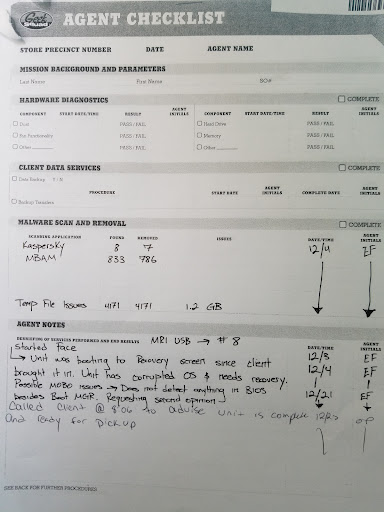 Geek SQUAD
AGENT CHECKLIST
STORE PRECINCT NUMBER DATE AGENT NAME
MISSION BACKGROUND AND PARAMETERS
Last Name First Name SO#
HARDWARE DIAGNOSTICS COMPLETE
COMPONENT START DATE/TIME RESULT AGENT INITIALS COMPONENT START DATE/TIME RESULT AGENT INITIALS
PASS / FAIL Hard Drive PASS / FAIL
Pin Functionality PASS / FAIL Memory PASS / FAIL
Other PASS / FAIL Other PASS / FAIL
CLIENT DATA SERVICES COMPLETE
Data Backup Y / N
PROCEDURE START DATE AGENT INITIALS COMPLETE DATE AGENT INITIALS
Backup Transfers
MALWARE SCAN AND REMOVAL COMPLETE
SCANNING APPLICATION FOUND REMOVED ISSUES DATE/TIME AGENT INITIALS
Kaspersky 8 7 12/4 EF
MBAM 833 786
Temp File Issues 4171 4171 1.2 GB
AGENT NOTES
DESCRIPTION OF SERVICES PERFORMED AND END RESULTS MRI USB → # 8 DATE/TIME AGENT INITIALS
Started Face 12/3 EF
↳ Unit was booting to Recovery screen since client
brought it in. Unit has corrupted OS & needs recovery. 12/4 EF
Possible MOBO issues → Does not detect anything in BIOS
besides Boot MGR. Requesting second opinion 12/21 EF
Called client @ 8:06 to advise unit is complete
and ready for pickup
SEE BACK FOR FURTHER PROCEDURES